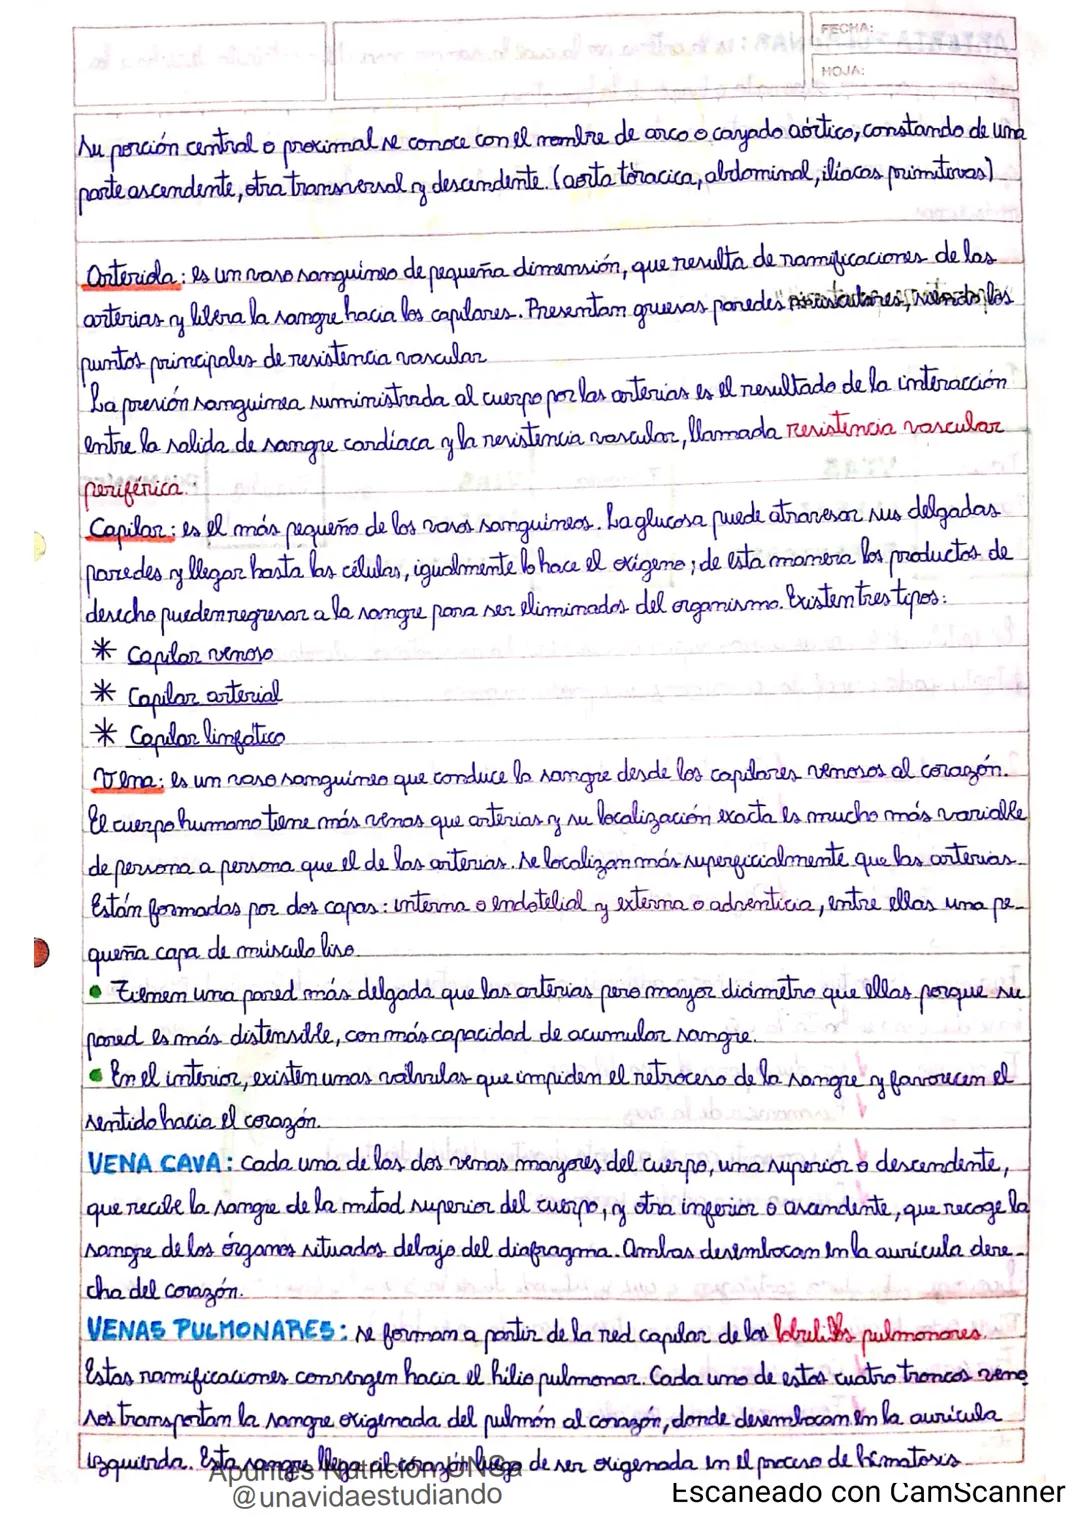 FECHA:
HOJA:
Su porción central o proximal se conoce con el nombre de arco o cayado aórtico, constando de una
parte ascendente, otra transversal y descendente. (aorta tóracica, abdominal, ilíacas primitivas)
Arteriola: es un vaso sanguíneo de pequeña dimensión, que resulta de ramificaciones de las
arterias y libera la sangre hacia los capilares. Presentan gruesas paredes musculares, siendo los
puntos principales de resistencia vascular
La presión sanguínea suministrada al cuerpo por las arterias es el resultado de la interacción
entre la salida de sangre cardíaca y la resistencia vascular, llamada resistencia vascular
periférica.
Capilar: es el más pequeño de los vasos sanguíneos. La glucosa puede atravesar sus delgadas
paredes y llegar hasta las células, igualmente lo hace el oxígeno; de esta manera los productos de
desecho pueden regresar a la sangre para ser eliminados del organismo. Existen tres tipos:
* Capilar venoso
* Capilar arterial
* Capilar linfático
Vena: es un vaso sanguíneo que conduce la sangre desde los capilares venosos al corazón.
El cuerpo humano tiene más venas que arterias y su localización exacta es mucho más variable
de persona a persona que el de las arterias. Se localizan más superficialmente que las arterias.
Están formadas por dos capas: interna o endotelial y externa o adventicia, entre ellas una pe-
queña capa de músculo liso.
• Tienen una pared más delgada que las arterias pero mayor diámetro que ellas porque su
pared es más distensible, con más capacidad de acumular sangre.
• En el interior, existen unas válvulas que impiden el retroceso de la sangre y favorecen el
sentido hacia el corazón.
VENA CAVA: Cada una de las dos venas mayores del cuerpo, una superior o descendente,
que recibe la sangre de la mitad superior del cuerpo, y otra inferior o ascendente, que recoge la
sangre de los órganos situados debajo del diafragma. Ambas desembocan en la aurícula dere-
cha del corazón.
VENAS PULMONARES: se forman a partir de la red capilar de los lobulillos pulmonares.
Estas ramificaciones convergen hacia el hilio pulmonar. Cada uno de estos cuatro troncos veno
sos transportan la sangre oxigenada del pulmón al corazón, donde desembocan en la aurícula
izquierda. Esta sangre llega al corazón luego de ser oxigenada en el proceso de hematosis.
Apuntes Nutrición UNSa
@unavidaestudiando
Escaneado con CamScanner